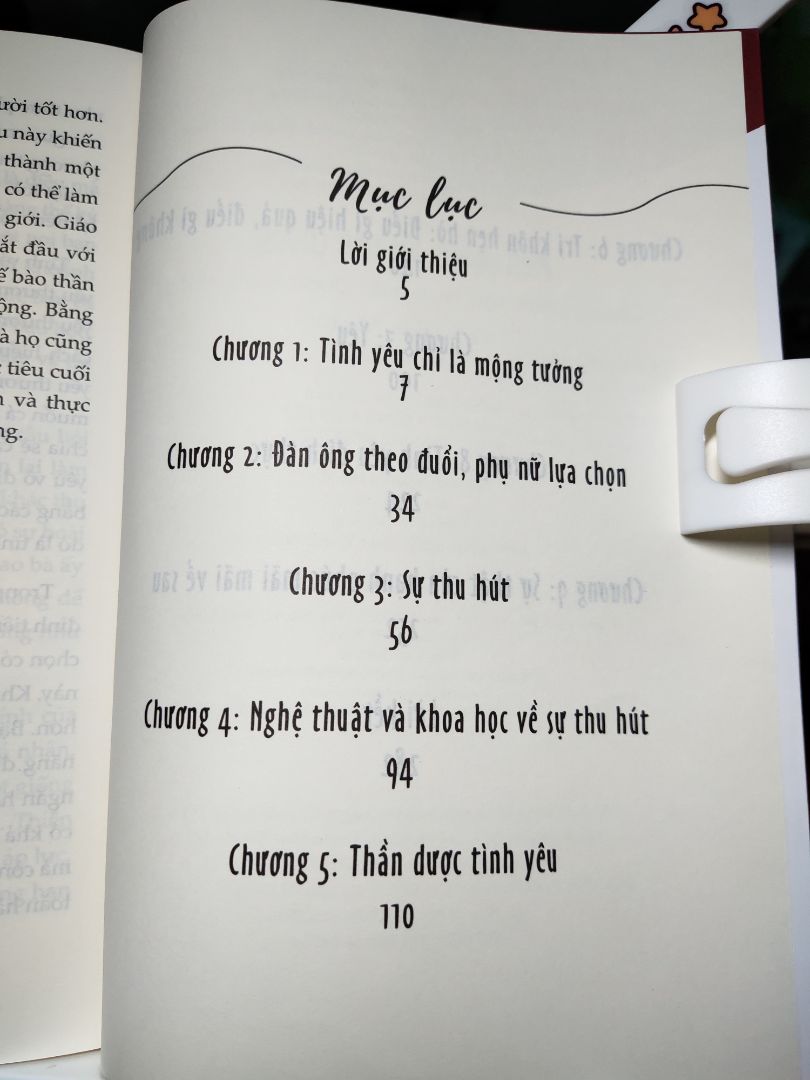 ười tốt hơn.
u này khiến
thành một
có thể làm
giới. Giáo
ắt đầu với
ế bào thần
ộng. Bằng
à họ cũng
tiêu cuối
n và thực
ng.
Mục lục
Lời giới thiệu
5
Chương 1: Tình yêu chỉ là mộng tưởng
7
Chương 2: Đàn ông theo đuổi, phụ nữ lựa chọn
34
Chương 3: Sự thu hút
56
Chương 4: Nghệ thuật và khoa học về sự thu hút
94
Chương 5: Thần dược tình yêu
110